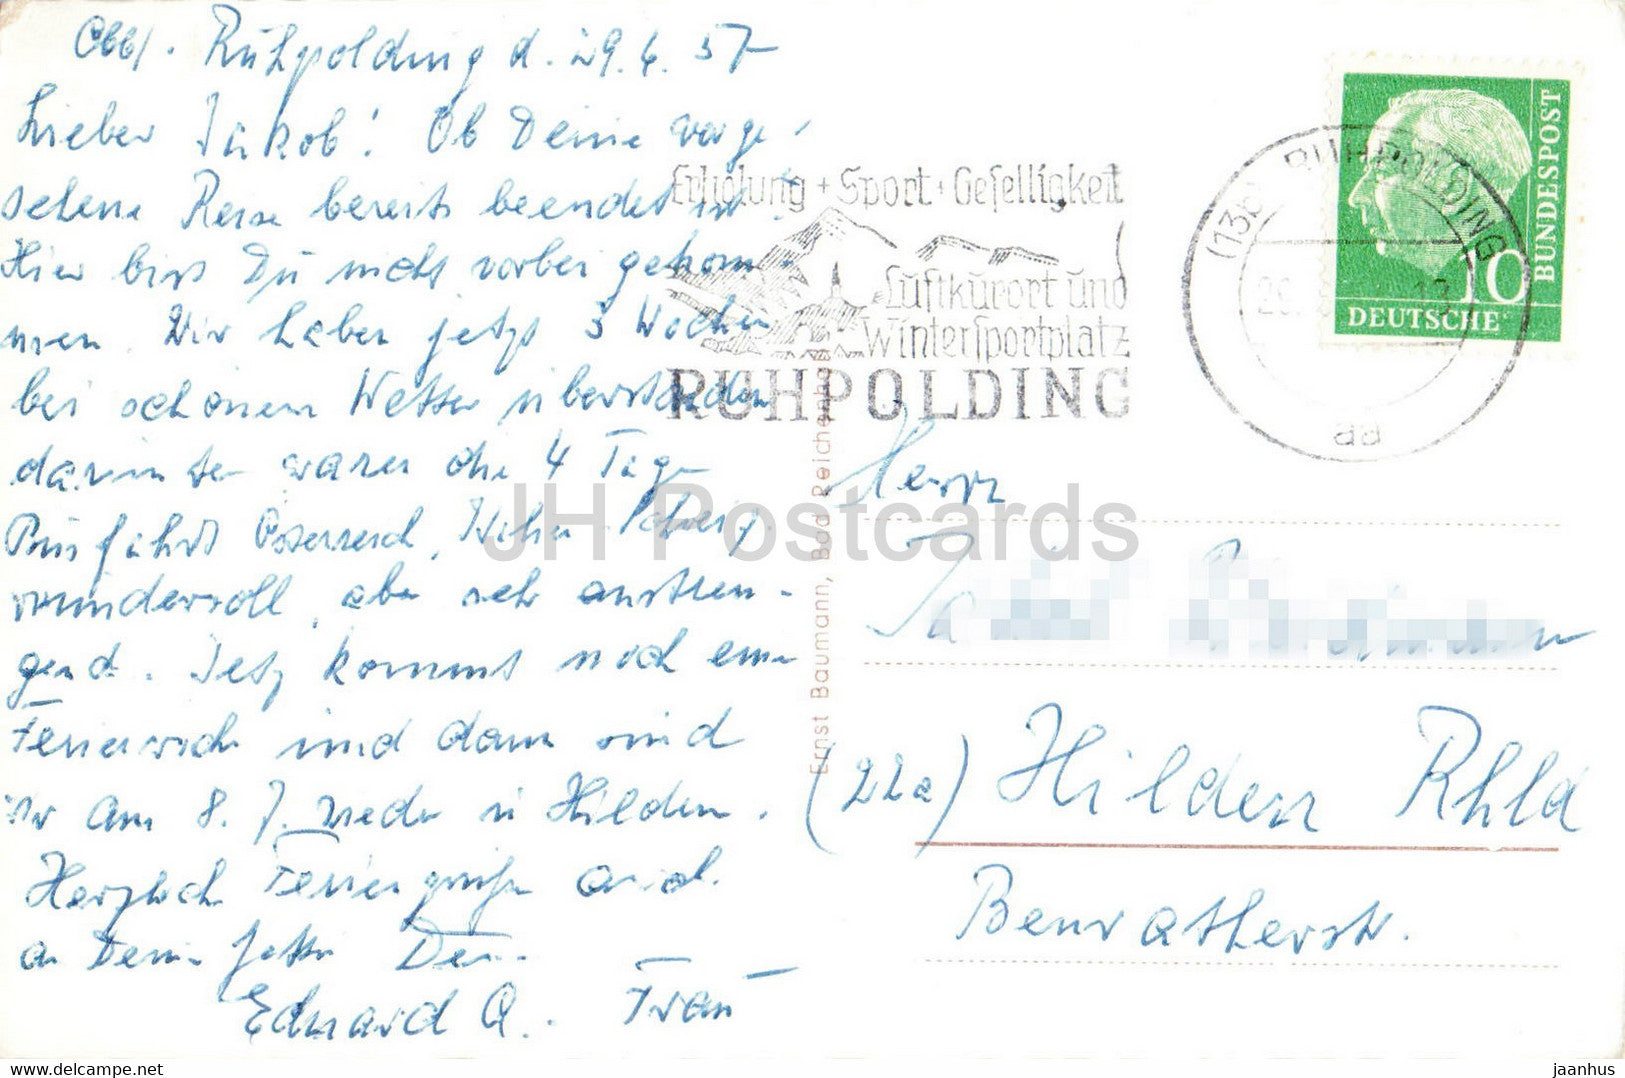 Obb/. Ruhpolding d. 29.6.57
Lieber Jakob! Ob Deine vorge-
sehene Reise bereits beendet ist?
Hier bist Du nicht vorbei gekom-
men. Wir haben jetzt 3 Wochen
bei schönem Wetter überstanden
darunter waren die 4 Tage
Österreich,
wundervoll, aber sehr anstren-
gend. Jetzt kommt noch eine
Ferienwoche und dann sind
wir am 8.7. wieder in Hilden.
Herzliche Feriengrüße auch
an Deine Dein
Eduard u. Frau
Erholung + Sport + Geselligkeit
Luftkurort und
Wintersportplatz
RUHPOLDING
(13b) RUHPOLDING
aa
10
DEUTSCHE
BUNDESPOST
Ernst Baumann, Bad Reichenhall
Herrn
(22a) Hilden Rhld
Benratherstr.
JH Postcards
delcampe.net
jaanhus